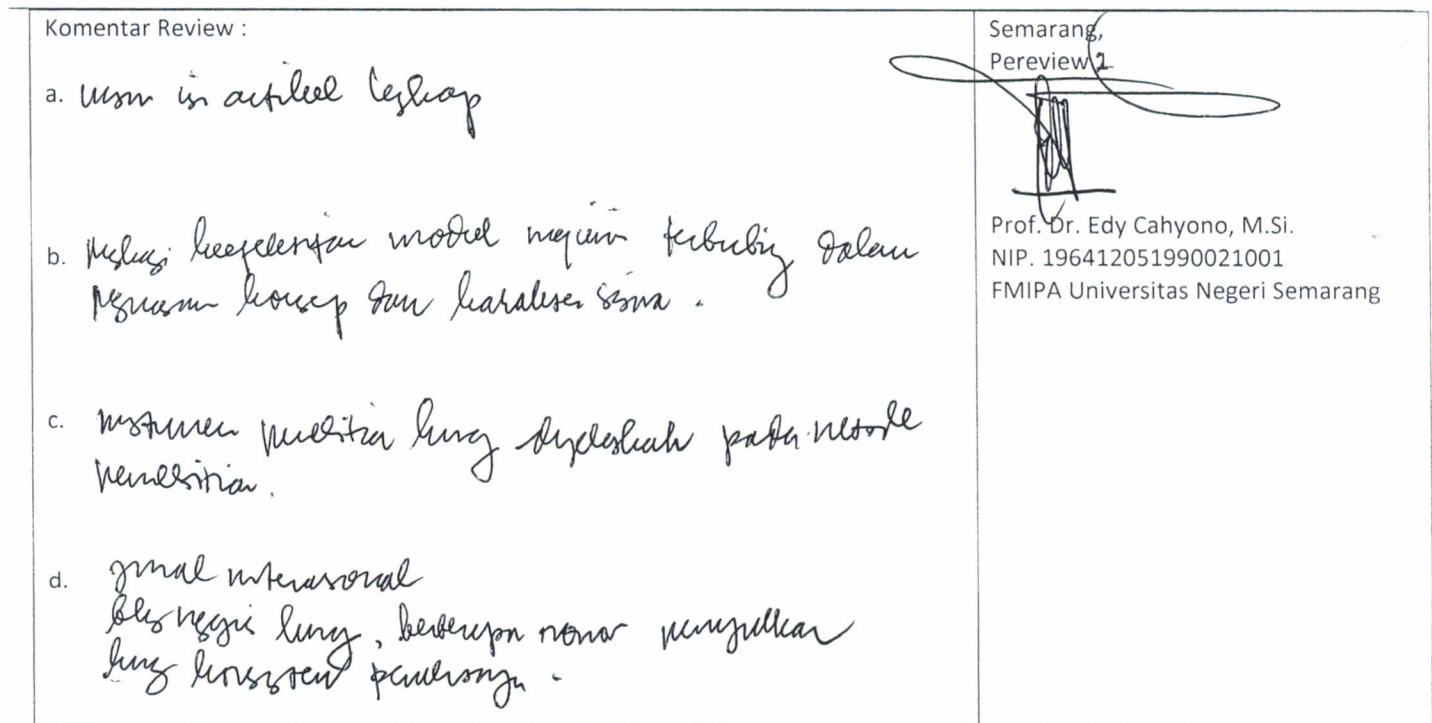 Komentar Review :
a. unsur isi artikel lengkap
b. modul inkuiri terbimbing dalam
konsep dan karakter siswa .
c. instrumen penelitian kurang dijelaskan pada metode
penelitian.
d. jurnal internasional
kurang, beberapa nomor
kurang konsisten penulisannya .
Semarang,
Pereview 1
Prof. Dr. Edy Cahyono, M.Si.
NIP. 196412051990021001
FMIPA Universitas Negeri Semarang